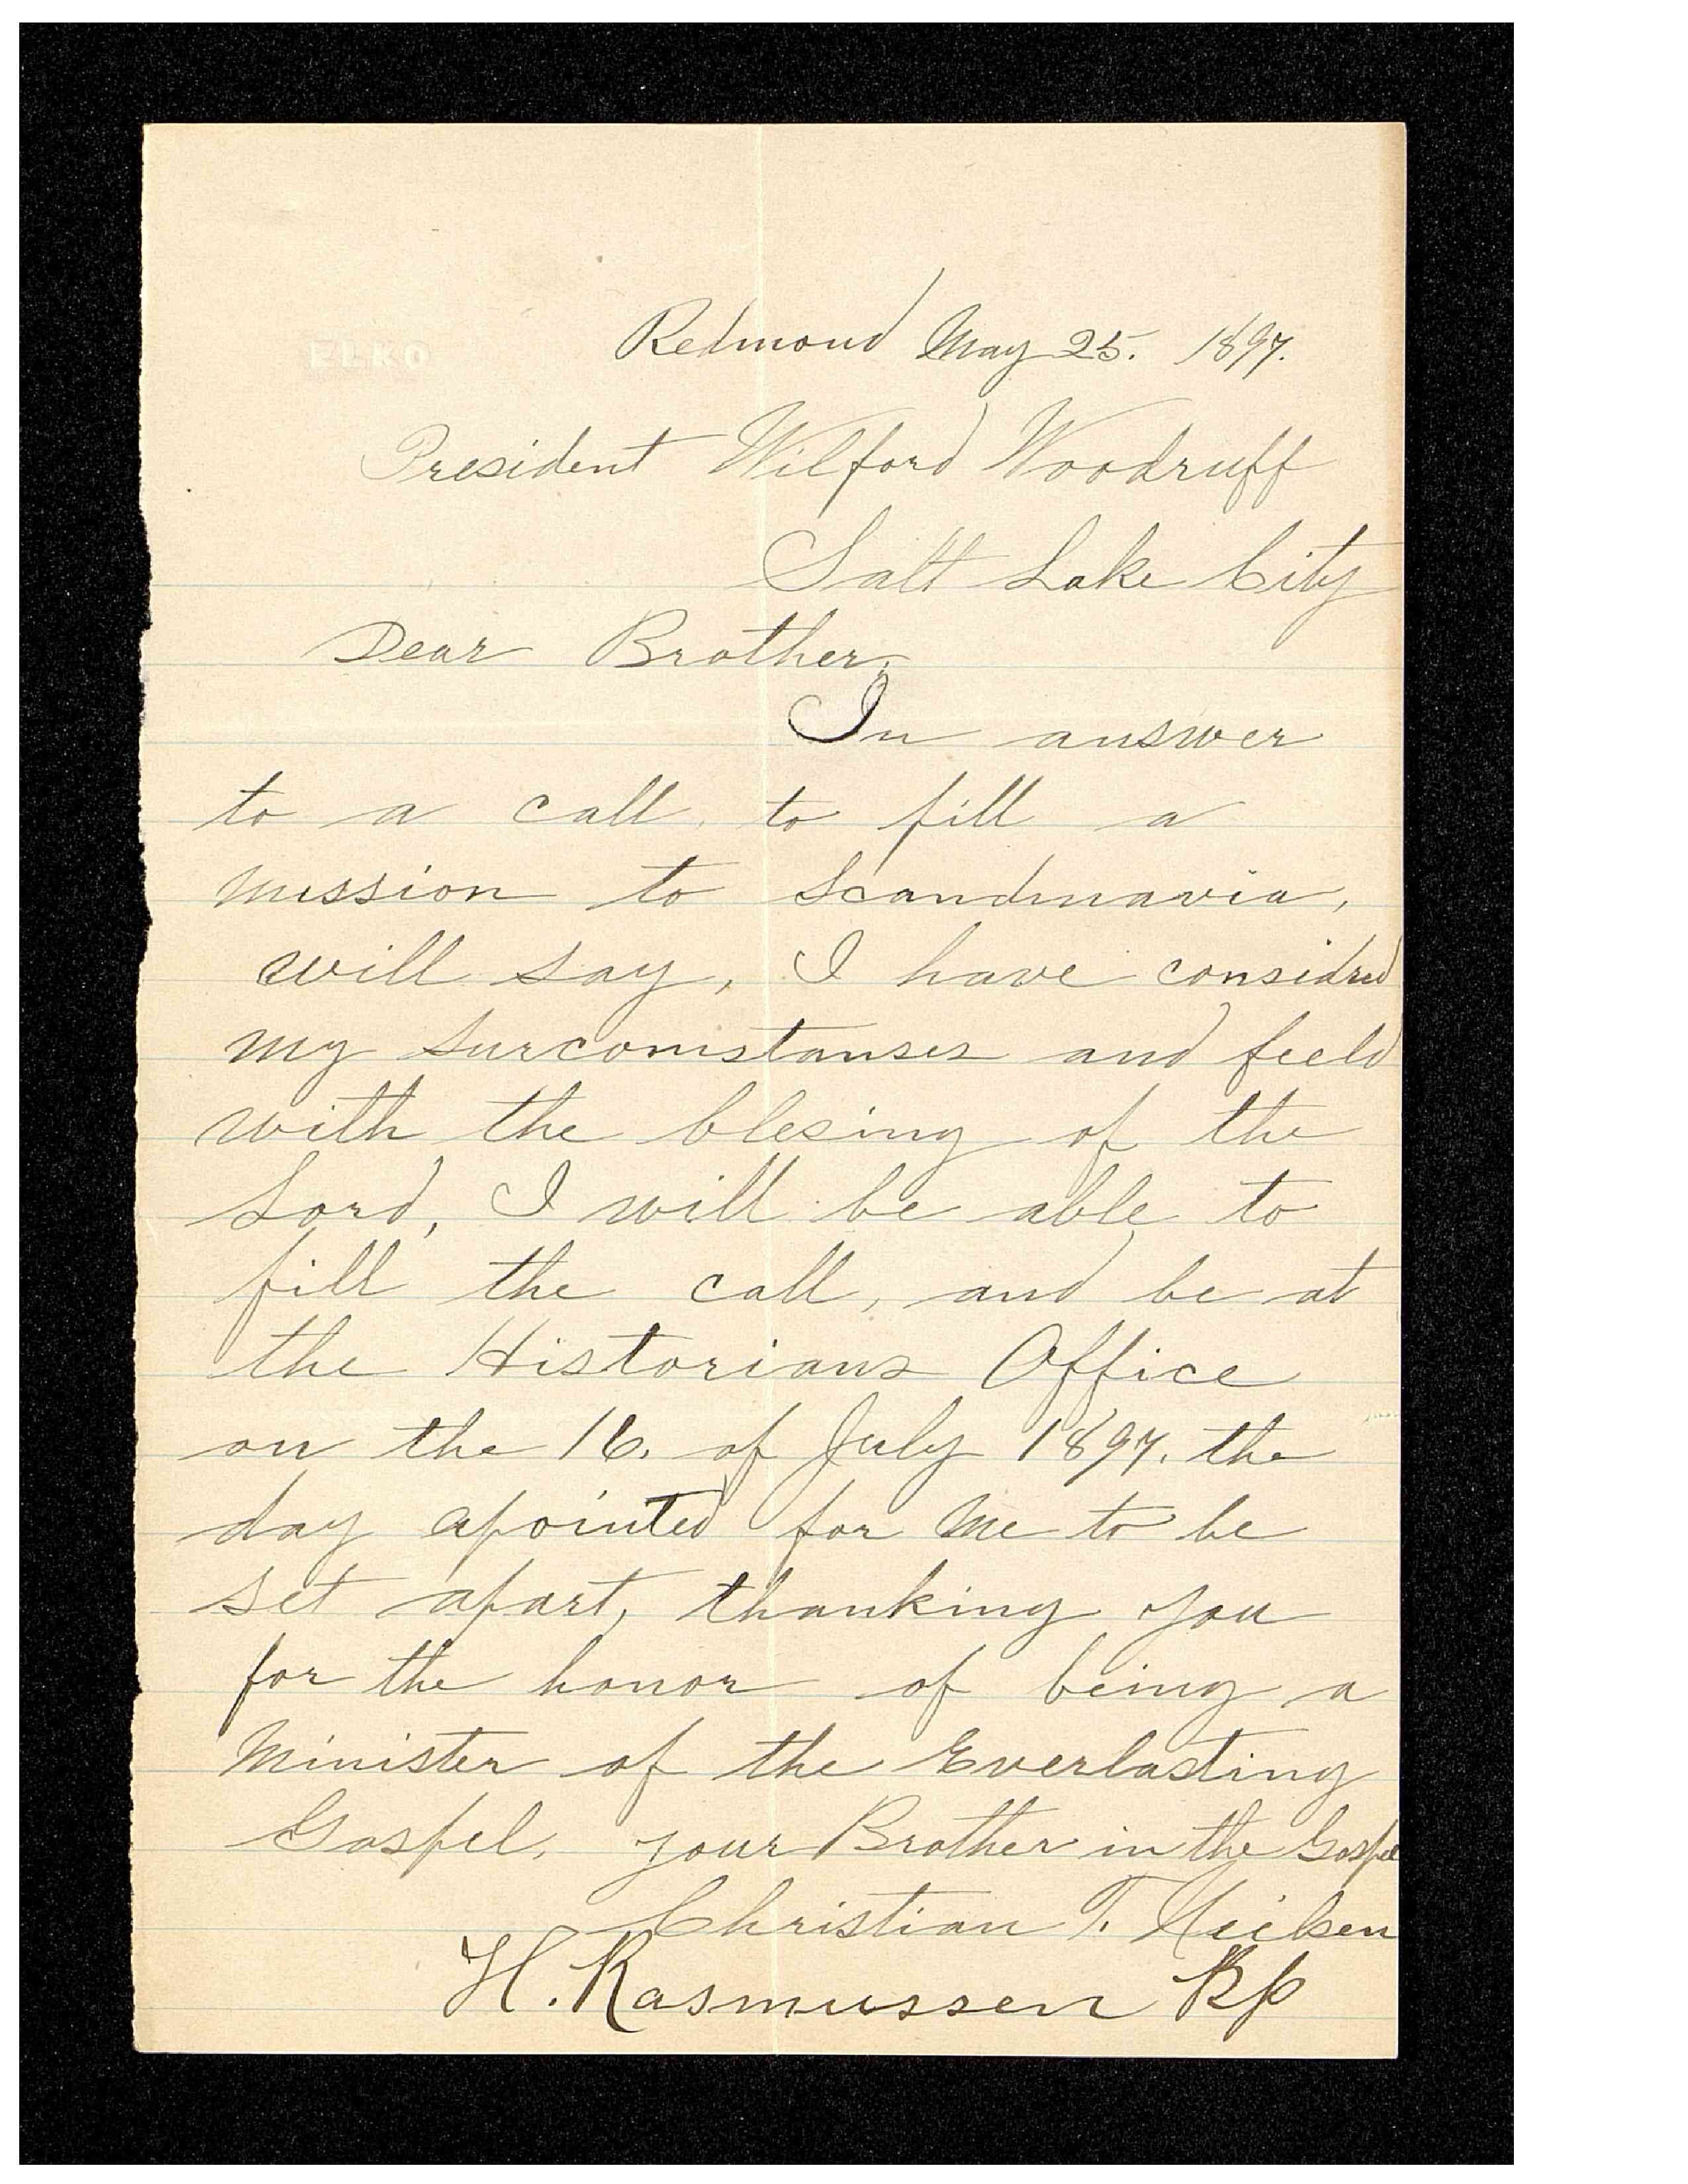 ELKO
Redmond May 25. 1897.
President Wilford Woodruff
Salt Lake City
Dear Brother,
In answer
to a call, to fill a
mission to Scandinavia,
will say, I have considred
my surcomstanses and feeld
with the blesing of the
Lord, I will be able to
fill the call, and be at
the Historians Office
on the 16. of July 1897. the
day apointed for me to be
set apart, thanking you
for the honor of being a
Minister of the Everlasting
Gospel, your Brother in the Gospel
Christian T. Neilsen
H. Rasmussen Bp